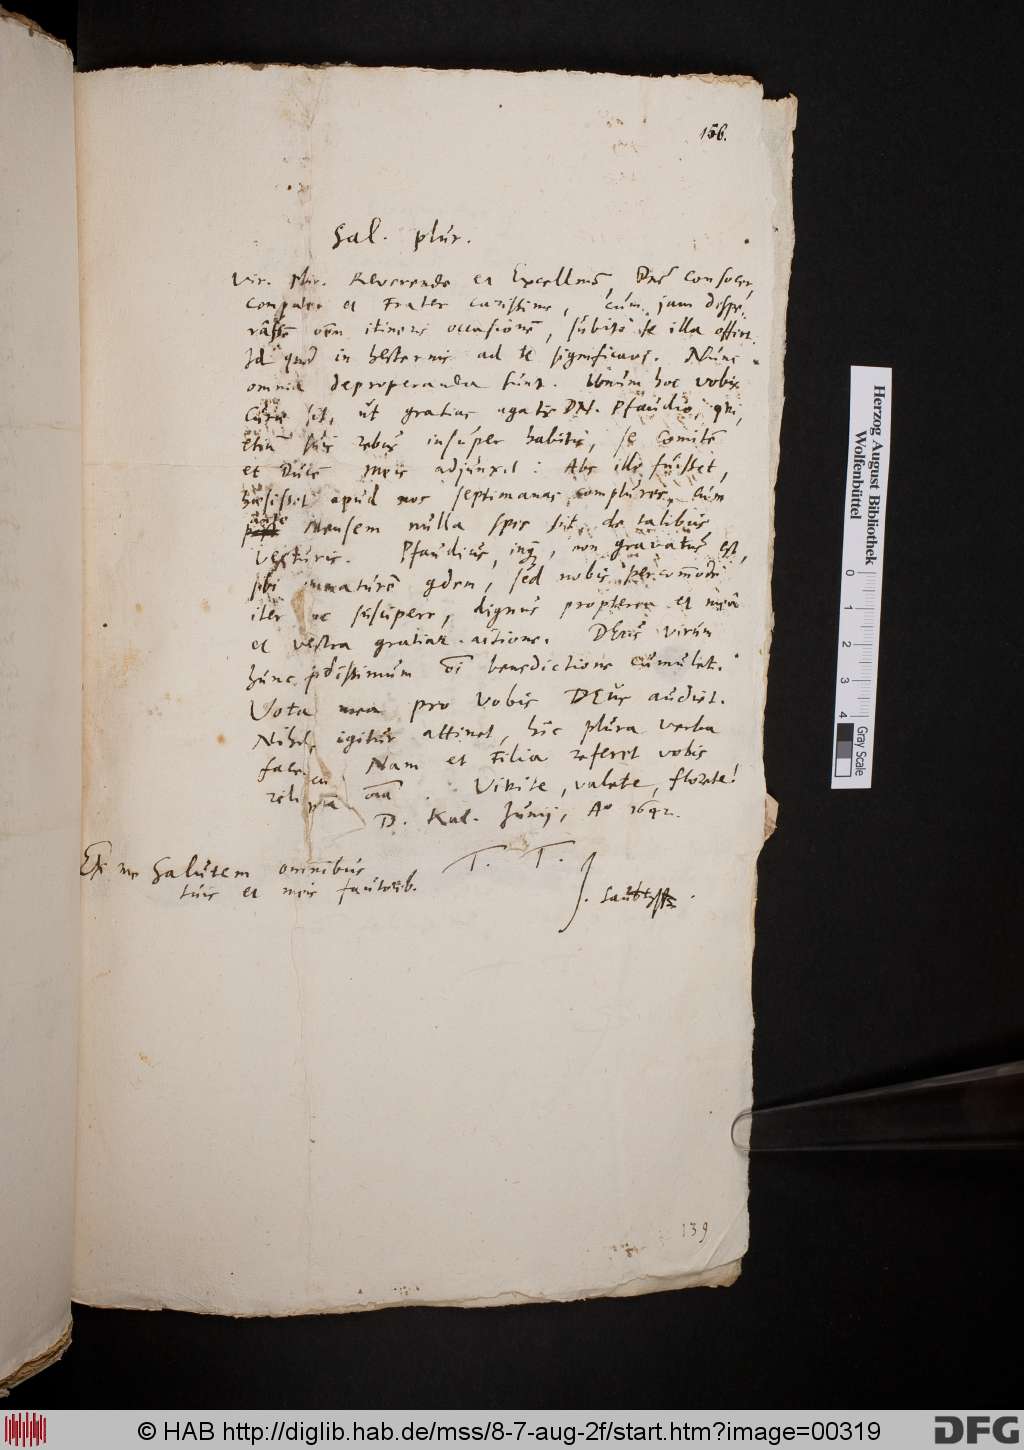 156.
Sal. plur.
Vir. Plur. Reverende et Excellens, Dne Consocer,
Compater et Frater carissime, cùm jam despe-
râssẽ oẽm itineris occasionẽ, subitò se illa offert.
Id quod in hesternis ad te significavi. Nunc
omnia deproperanda sunt. Unum hoc vobis
curæ sit, ut gratias agatis DN. Pfaudio, qui,
etiã suis rebus insuper habitis, se Comitẽ
et Ducẽ meis adjunxit: Abs illo fuisset,
hæsissent apud nos septimanas complures, cum
ante Mensem nulla spes sit de talibus
vecturis. Pfaudius, inq, non gravatus est,
sibi immaturẽ qdem, sed nobis percommodũ
iter hoc suscipere, dignus propterea et meâ
et vestra gratiar. actione. DEus virum
hunc pdissimum oi benedictione cumulet.
Vota mea pro Vobis DEus audiet.
Nihil igitur attinet, hîc plura verba
facere. Nam et Filia referet vobis
reli oia. Vivite, valete, florete!
D. Kal. Junij, Aº 1642.
T. T.
Ex me Salutem omnibus
tuis et meis fautorib.
J. Saubertus.
139
Herzog August Bibliothek
Wolfenbüttel
0 1 2 3 4
Gray Scale
© HAB http://diglib.hab.de/mss/8-7-aug-2f/start.htm?image=00319
DFG